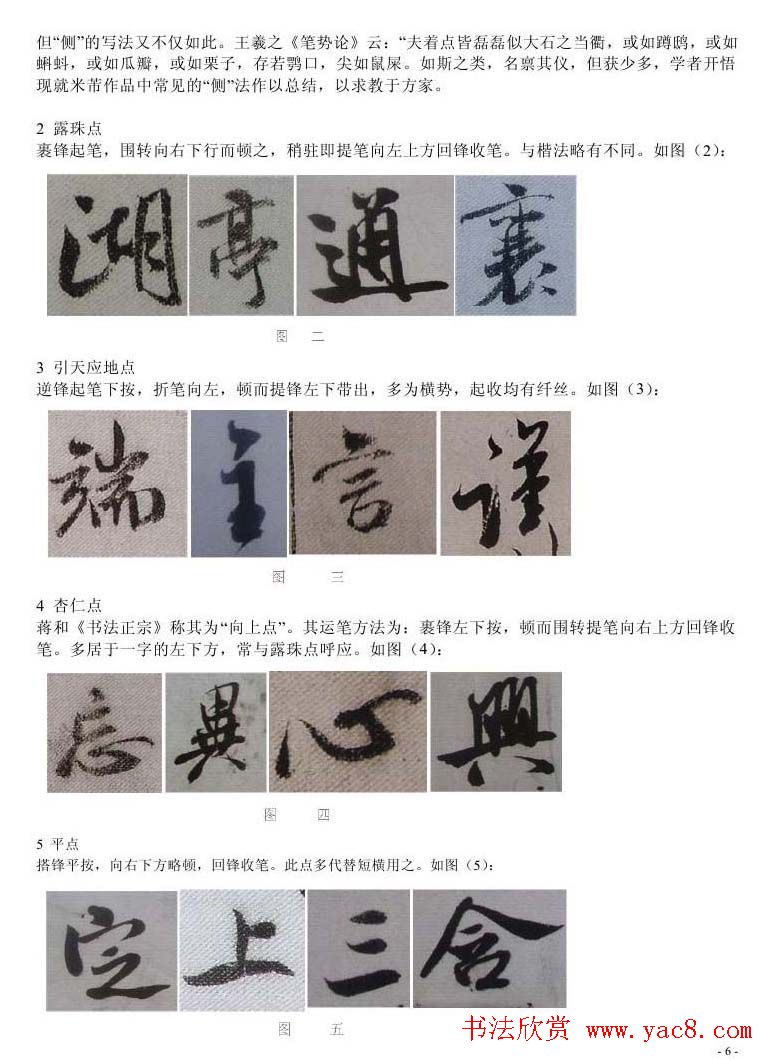 但“侧”的写法又不仅如此。王羲之《笔势论》云：“夫着点皆磊磊似大石之当衢，或如蹲鸱，或如
蝌蚪，或如瓜瓣，或如栗子，存若鹗口，尖如鼠屎。如斯之类，各禀其仪，但获少多，学者开悟
现就米芾作品中常见的“侧”法作以总结，以求教于方家。
2 露珠点
裹锋起笔，围转向右下行而顿之，稍驻即提笔向左上方回锋收笔。与楷法略有不同。如图（2）：
湖 亭 通 裹
图 二
3 引天应地点
逆锋起笔下按，折笔向左，顿而提锋左下带出，多为横势，起收均有纤丝。如图（3）：
端 主 言 谨
图 三
4 杏仁点
蒋和《书法正宗》称其为“向上点”。其运笔方法为：裹锋左下按，顿而围转提笔向右上方回锋收
笔。多居于一字的左下方，常与露珠点呼应。如图（4）：
忘 異 心 興
图 四
5 平点
搭锋平按，向右下方略顿，回锋收笔。此点多代替短横用之。如图（5）：
定 上 三 含
图 五
书法欣赏 www.yac8.com
- 6 -